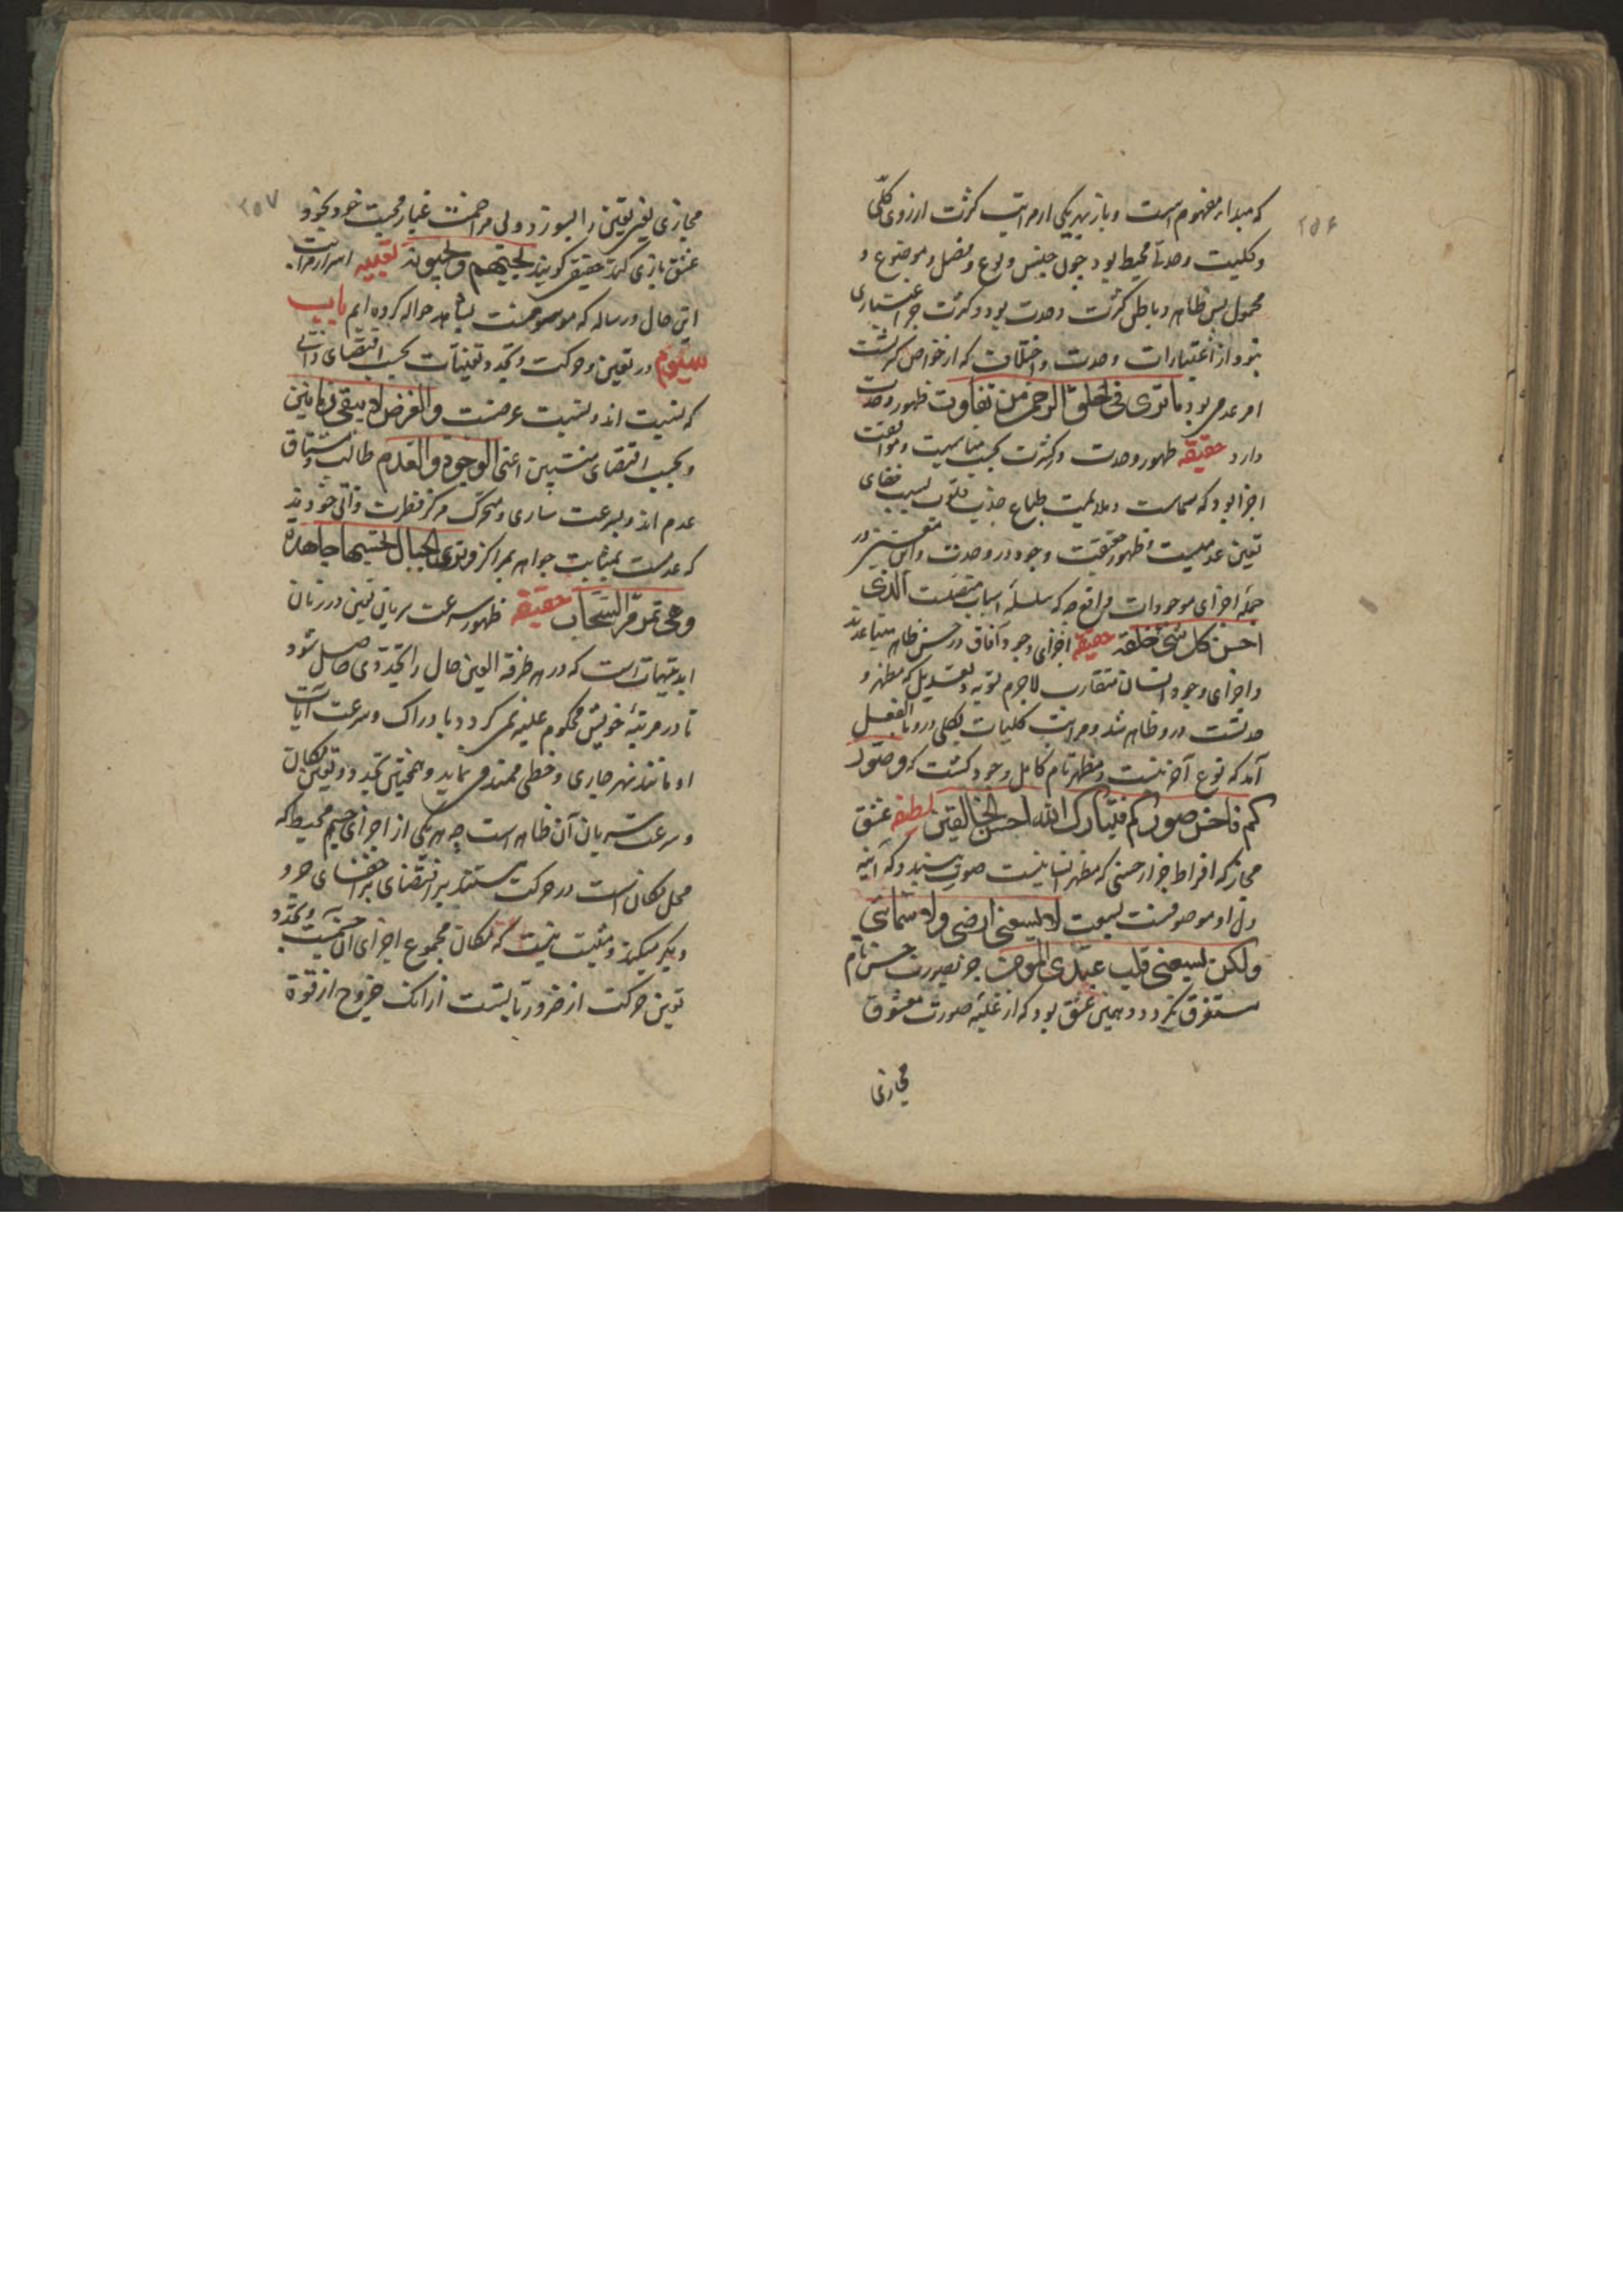 ۲۵۶
که مبداء مفهوم است و باز بهر یکی از مراتب کثرت از روی کلی
و کلیت وحدتی محیط بود چون جنس و نوع و فصل و موضوع و
محمول پس ظاهر و باطن کثرت وحدت بود و کثرت جز اعتباری
نبود از اعتبارات وحدت و اختلاف که از خواص کثرتست
امر عدمی بود ما تری فی خلق الرحمن من تفاوت ظهور وحدت
دارد حقیقه ظهور وحدت در کثرت بحسب مناسبت و موافقت
اجزا بود که مماست و ملایمت طباع جذب قلوب بسبب خفای
تعین عدمیست و ظهور حقیقت وجود در وحدت و این معنی در
جمله اجزای موجودات واقع چه که سلسله اسباب متصلست الذی
احسن کل شئ خلقه حقیقه اجزای وجود آفاق در حسن ظاهر متباعدند
و اجزای وجود انسان متقارب لاجرم تسویه و تعدیل که مظهر و
حدتست درو ظاهر شد و مراتب کلیات بکلی درو بالفعل
آمد که نوع آخرینست و مظهر تام کامل وجود گشت که و صور
کم فاحسن صورکم فتبارک الله احسن الخالقین لطیفه عشق
مجاز که افراط جز از حسنی که مظهر انسانیست صورت نبندد که آینه
دل او موصوفست بسعت لا یسعنی ارضی ولا سمائی
ولکن یسعنی قلب عبدی المومن جز بصورت حسن تام
مستغرق نگردد و همین عشق بود که از غلبه صورت معشوق
مجازی
۲۵۷
مجازی یعنی تعین را بسوزد و بی مزاحمت غبار محبت خود بخود
عشق بازی کند حقیقی گویند یحبهم و یحبونه تنبیه اسرار مراتب
این حال در رساله که موسومست بشاهد حواله کرده ایم باب
سیوم در تعین و حرکت و تجدد تعینات بحسب اقتضای ذاتی
که نسبت اند و نسبت عرضست والعرض لا یبقی زمانین
و بحسب اقتضای منتسبین اعنی الوجود والعدم طالب و مشتاق
عدم اند و بسرعت ساری و متحرک مرکز فطرت ذاتی خودند
که عدمست بمثابت جواهر بمراکز و تری الجبال تحسبها جامدة
وهی تمر مر السحاب حقیقه ظهور سرعت سریان تعین در زمان
ابد بدیهیات است که در هر طرفة العین حال را تجددی حاصل شود
تا در مرتبه خویش محکوم علیه نمی گردد با دراک و سرعت آیات
او مانند نهر جاری و خطی ممتد می نماید و همچنین تجدد و تعین مکان
و سرعت سریان آن ظاهر است چه هر یکی از اجزای جسم محیط که
محل مکان است در حرکت مستند بر اقتضای بر خفای جزو
دیگر میکند و مثبت نیست که مکان مجموع اجزای آن جسمیت و تجدد
تعین حرکت از ضروریاتست از آنک خروج از قوة